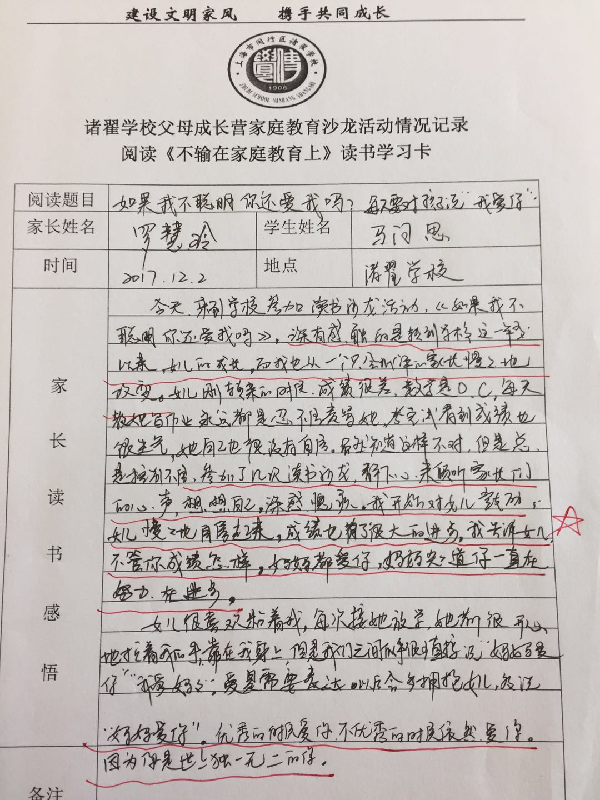 建设文明家风 携手共同成长
上海市闵行区诸翟学校
1906
诸翟学校父母成长营家庭教育沙龙活动情况记录
阅读《不输在家庭教育上》读书学习卡
阅读题目 如果我不聪明你还爱我吗? 每天要对孩子说"我爱你"
家长姓名 罗慧玲 学生姓名 马问思
时间 2017.12.2 地点 诸翟学校
家长读书感悟
今天,来到学校参加读书沙龙活动,《如果我不
聪明你还爱我吗》,深有感触的是转到学校这一年多
以来,女儿的成长,而我也从一个只会川泽的家长慢慢地
改变。女儿刚转来的时候,成绩很差,数学是D.C,每天
教她写作业永远都是忍不住责骂她,考完试看到成绩也
很生气,她自己也很没有自信。后来知道这样不对,但是总
是控制不住,参加了几次读书沙龙,静下心来倾听家长们
的心声,想想自己,深感愧疚。我开始对女儿鼓励,
女儿慢慢地自信起来,成绩也有了很大的进步,我告诉女儿
不管你成绩怎样,妈妈都爱你,妈妈知道你一直在
努力,在进步。
女儿很喜欢粘着我,每次接她放学,她都很开心
地拉着我的手,靠在我身上,但是我们之间似乎很少直接说"妈妈爱
你""我爱妈妈",爱是需要表达,以后会多拥抱女儿,多说
"妈妈爱你"。优秀的时候爱你,不优秀的时候依然爱你。
因为你是世上独一无二的你。
备注